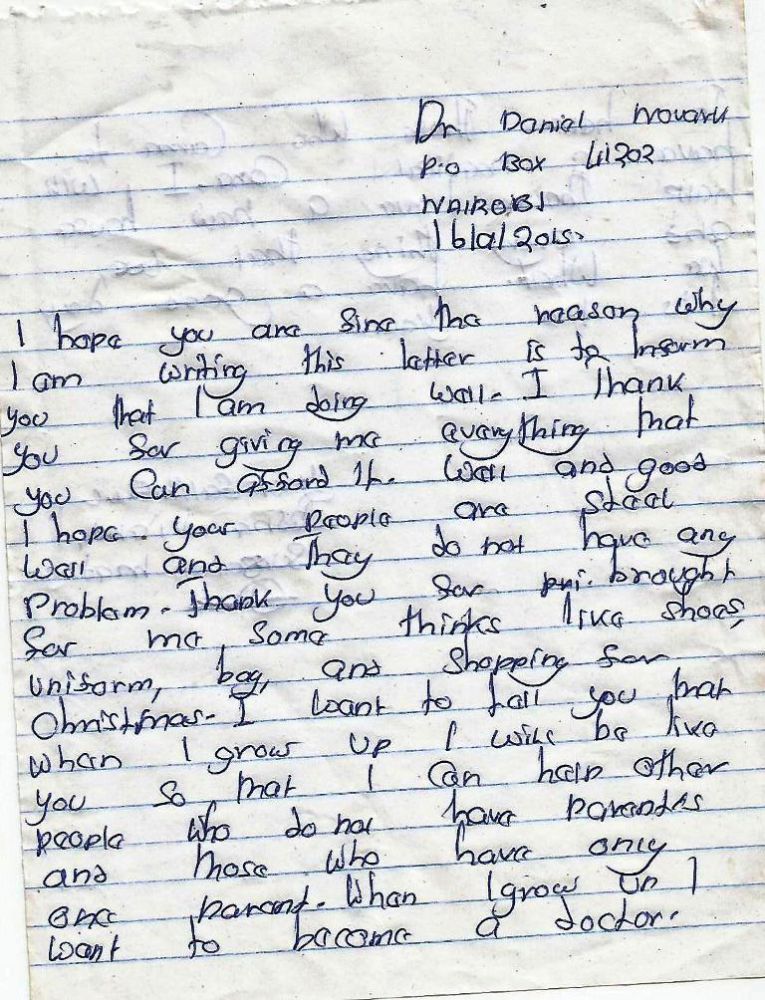 Dr Daniel
P.o Box 41202
NAIROBI
I hope you are fine the reason why
I am writing this letter is to Inform
you that I am doing well. I thank
you for giving me everything that
you can afford it. Well and good
I hope. your people are steel
well and they do not have any
problem. Thank you for brought
for me some thinks like shoes,
uniform, bag, and shopping for
Christmas. I want to tell you that
when I grow up I will be like
you so that I can help other
people who do not have parents
and those who have only
one parent. When I grow up I
want to become a doctor.